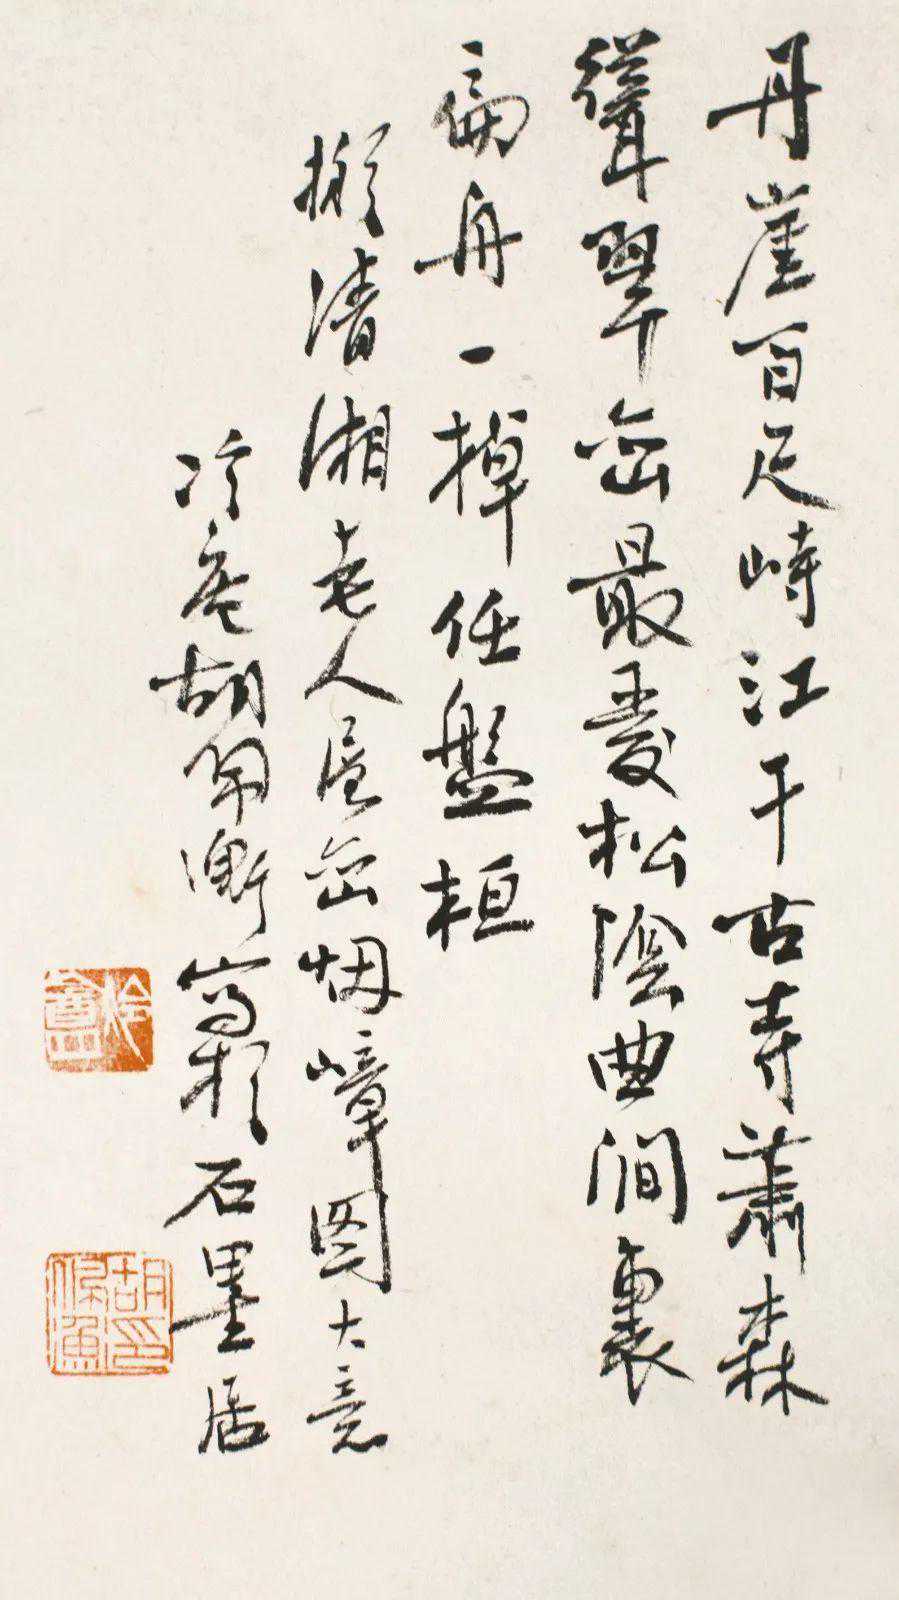 丹崖百尺峙江干古寺蕭森
聳翠巒最愛松陰曲澗裏
扁舟一掉任盤桓
擬清湘老人層巒烟嶂圖大意
冷庵胡佩衡寫於石墨居
冷盦